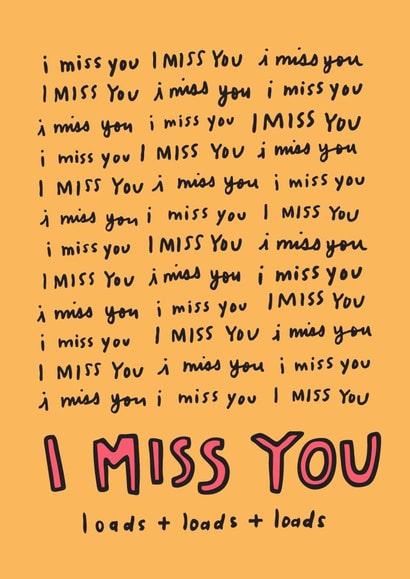 i miss you I MISS YOU i miss you
I MISS YOU i miss you i miss you
i miss you i miss you I MISS YOU
i miss you I MISS YOU i miss you
I MISS YOU i miss you i miss you
i miss you i miss you I MISS YOU
i miss you I MISS YOU i miss you
I MISS YOU i miss you i miss you
i miss you i miss you I MISS YOU
i miss you I MISS YOU i miss you
I MISS YOU i miss you i miss you
i miss you i miss you I MISS YOU
I MISS YOU
loads + loads + loads